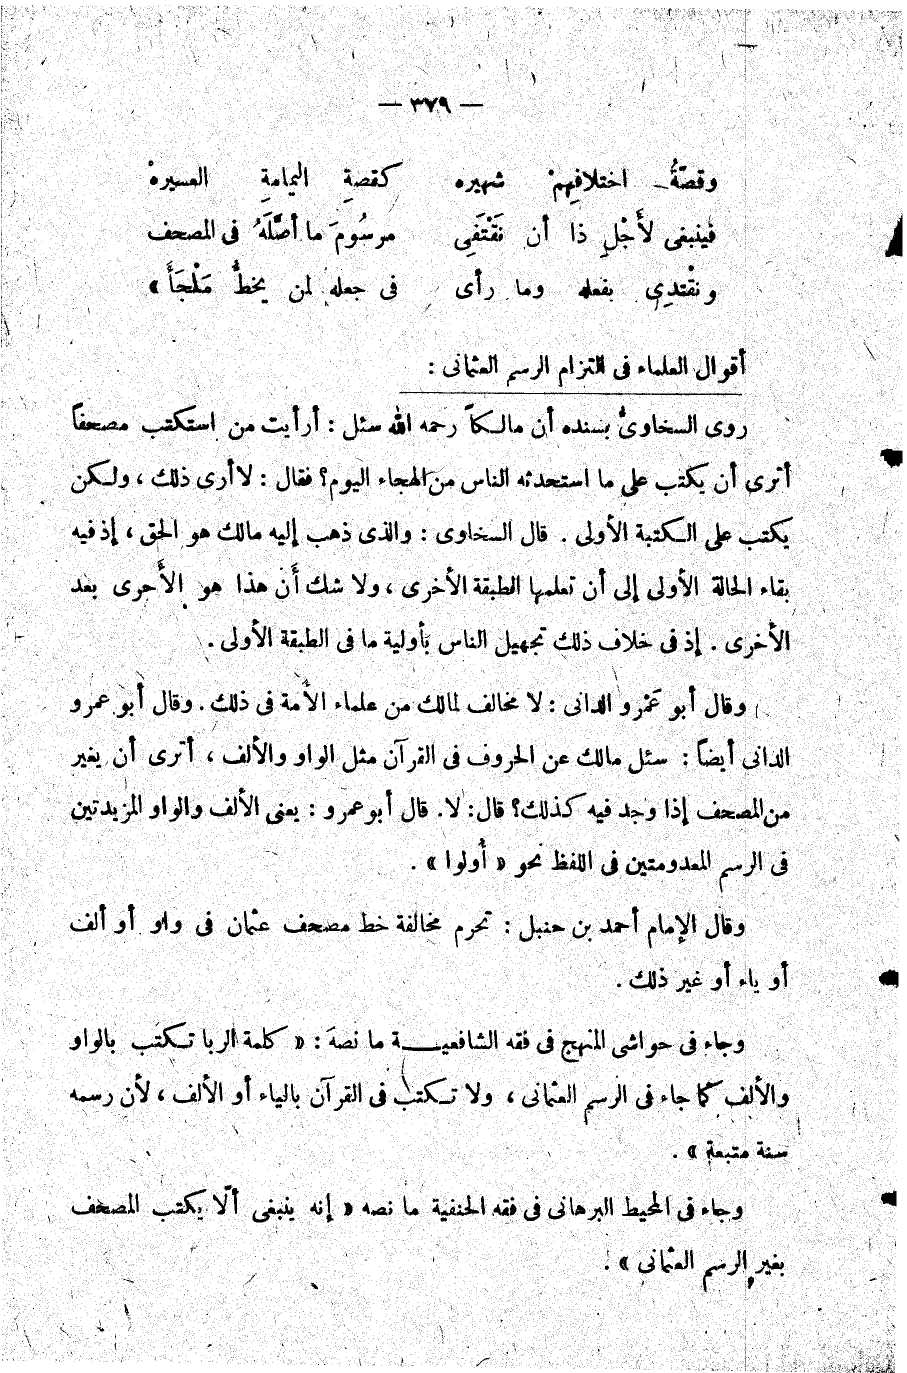 — ٣٧٩ —
وقصّةُ اختلافِهِمْ شهيره كقصةِ اليمامةِ العسيرهْ
فينبغى لأَجْلِ ذا أن نَقْتَفِى مرسُومَ ما أصَّلَهُ فى المصحف
ونقْتدِى بفعله وما رأى فى جعله لمن يخطُّ مَلْجَأَ »
أقوال العلماء فى التزام الرسم العثمانى :
روى السخاوىُّ بسنده أن مالكاً رحمه الله سئل : أرأيت من استكتب مصحفاً
أترى أن يكتب على ما استحدثه الناس من الهجاء اليوم؟ فقال : لا أرى ذلك ، ولكن
يكتب على الكتبة الأولى . قال السخاوى : والذى ذهب إليه مالك هو الحق ، إذ فيه
بقاء الحالة الأولى إلى أن تعلمها الطبقة الأخرى ، ولا شك أن هذا هو الأحرى بعد
الأخرى . إذ فى خلاف ذلك تجهيل الناس بأولية ما فى الطبقة الأولى .
وقال أبو عَمْرو الدانى : لا مخالف لمالك من علماء الأمة فى ذلك . وقال أبو عمرو
الدانى أيضاً : سئل مالك عن الحروف فى القرآن مثل الواو والألف ، أترى أن يغير
من المصحف إذا وجد فيه كذلك؟ قال : لا . قال أبو عمرو : يعنى الألف والواو المزيدتين
فى الرسم المعدومتين فى اللفظ نحو « أُولوا » .
وقال الإمام أحمد بن حنبل : تحرم مخالفة خط مصحف عثمان فى واو أو ألف
أو ياء أو غير ذلك .
وجاء فى حواشى المنهج فى فقه الشافعيـــة ما نصه : « كلمة الربا تكتب بالواو
والألف كما جاء فى الرسم العثمانى ، ولا تكتب فى القرآن بالياء أو الألف ، لأن رسمه
سنة متبعة » .
وجاء فى المحيط البرهانى فى فقه الحنفية ما نصه « إنه ينبغى ألّا يكتب المصحف
بغير الرسم العثمانى » .